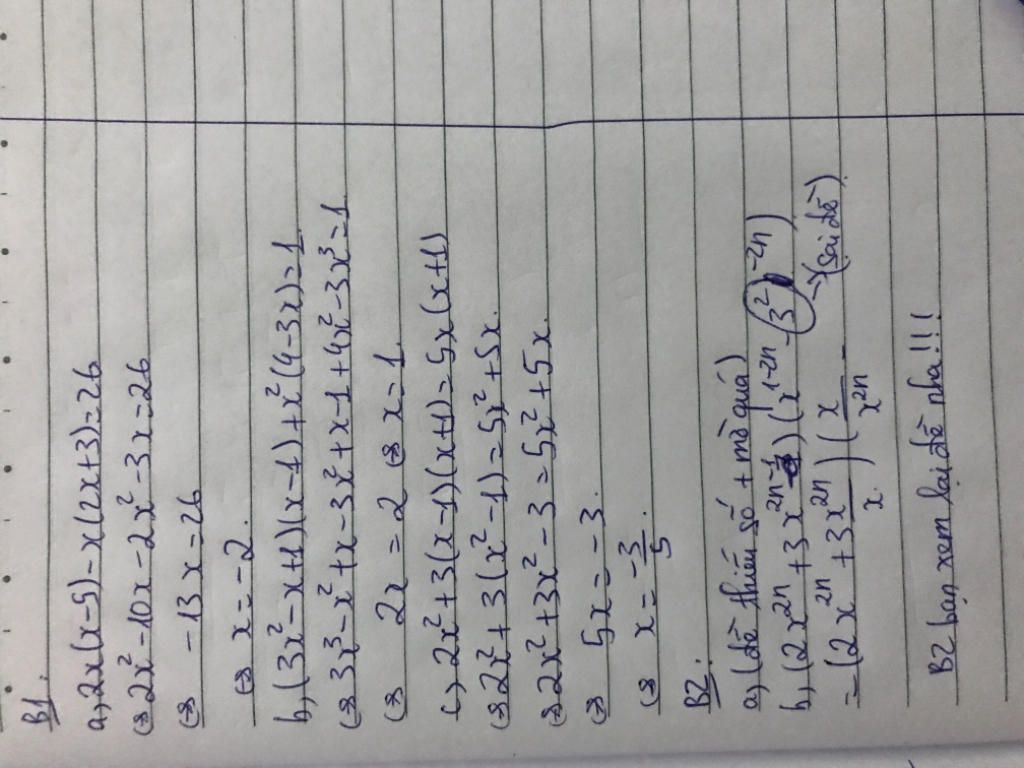 B1.
a, 2x(x-5)-x(2x+3)=26
⇔ 2x²-10x-2x²-3x=26
⇔ -13x=26
⇔ x=-2.
b, (3x²-x+1)(x-1)+x²(4-3x)=1
⇔ 3x³-x²+x-3x²+x-1+4x²-3x³=1
⇔ 2x=2 ⇔ x=1.
c, 2x²+3(x-1)(x+1)=5x(x+1)
⇔ 2x²+3(x²-1)=5x²+5x.
⇔ 2x²+3x²-3=5x²+5x.
⇔ 5x=-3.
⇔ x=-3/5.
B2.
a, (đề thiếu số + mờ quá)
b, (2x²ⁿ+3x²ⁿ⁻¹)(x¹⁻²ⁿ-(3²)⁻²ⁿ)
=(2x²ⁿ+3x²ⁿ/x)(x/x²ⁿ- →(sai đề)
B2 bạn xem lại đề nha!!!